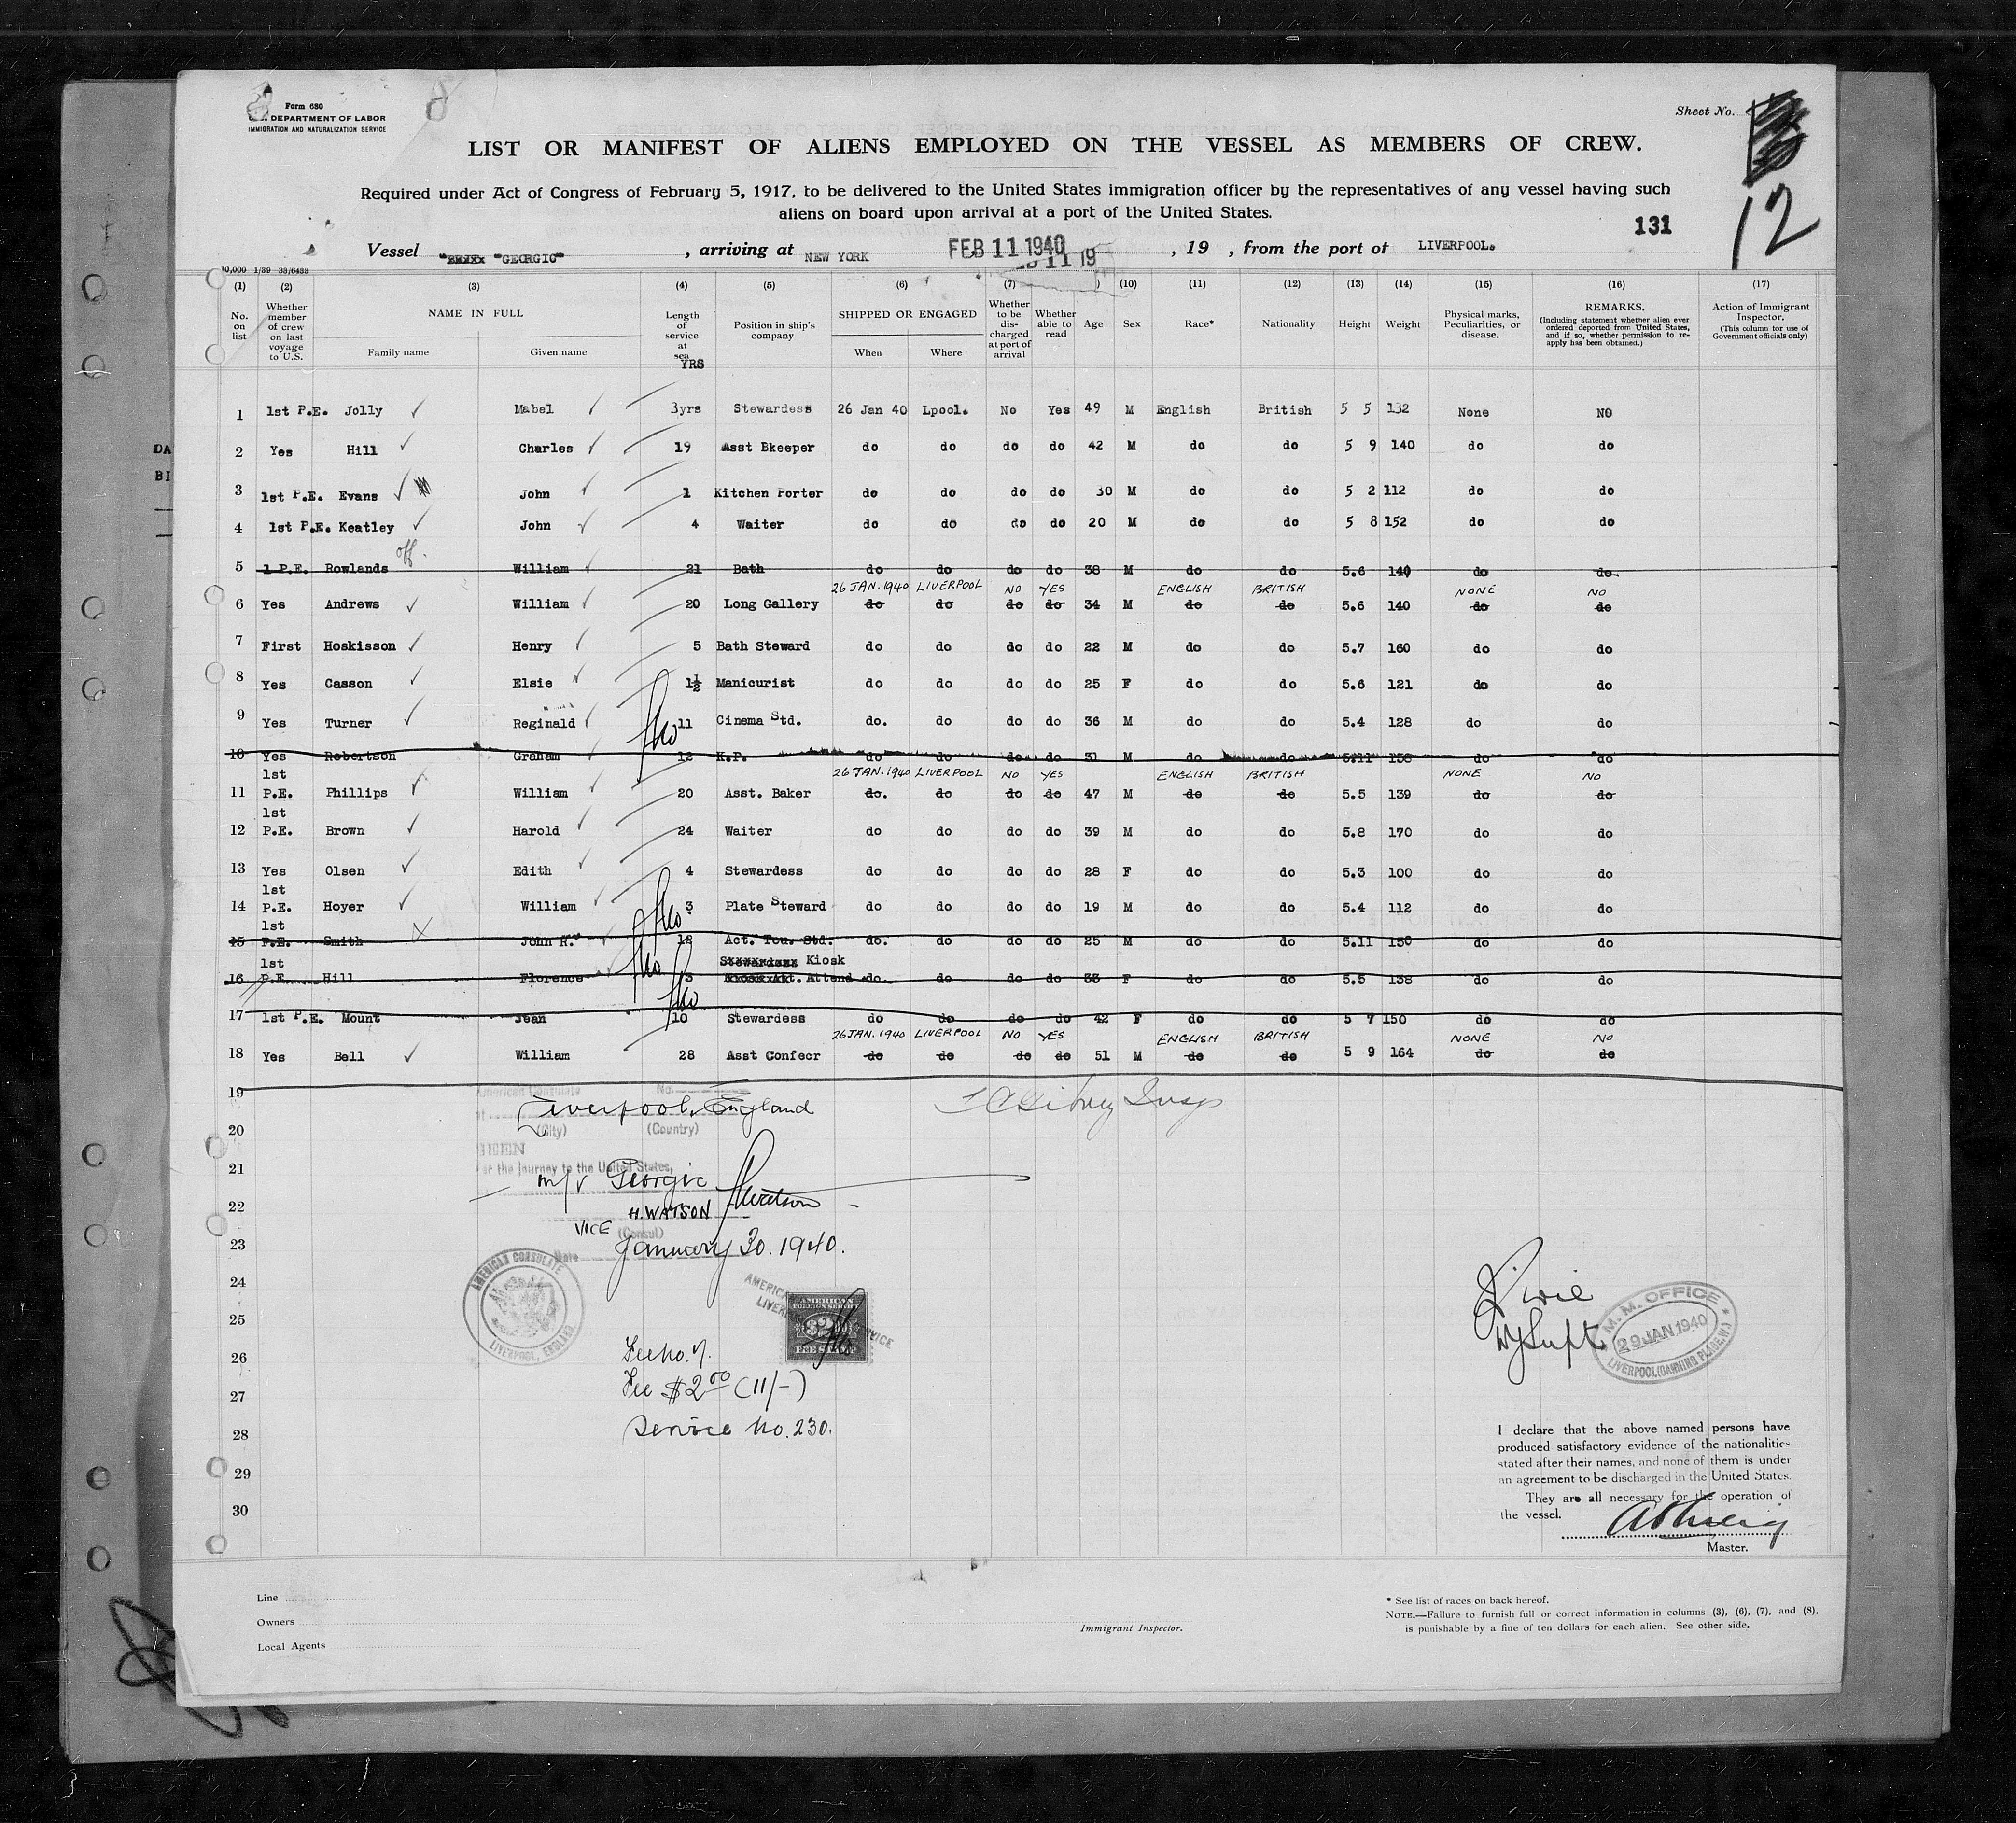 Form 680
DEPARTMENT OF LABOR
IMMIGRATION AND NATURALIZATION SERVICE
Sheet No.
12
LIST OR MANIFEST OF ALIENS EMPLOYED ON THE VESSEL AS MEMBERS OF CREW.
Required under Act of Congress of February 5, 1917, to be delivered to the United States immigration officer by the representatives of any vessel having such
aliens on board upon arrival at a port of the United States.
131
Vessel "GEORGIC" , arriving at NEW YORK FEB 11 1940 , 19 , from the port of LIVERPOOL.
10,000 1/39 33/6433
(1) (2) (3) (4) (5) (6) (7) (10) (11) (12) (13) (14) (15) (16) (17)
No. on list
Whether member of crew on last voyage to U.S.
NAME IN FULL
Family name Given name
Length of service at sea
YRS
Position in ship's company
SHIPPED OR ENGAGED
When Where
Whether to be discharged at port of arrival
Whether able to read
Age Sex Race* Nationality Height Weight
Physical marks, Peculiarities, or disease.
REMARKS.
(Including statement whether alien ever ordered deported from United States, and if so, whether permission to re-apply has been obtained.)
Action of Immigrant Inspector.
(This column for use of Government officials only)
1 1st P.E. Jolly Mabel 3yrs Stewardess 26 Jan 40 Lpool. No Yes 49 M English British 5 5 132 None NO
2 Yes Hill Charles 19 Asst Bkeeper do do do do 42 M do do 5 9 140 do do
3 1st P.E. Evans John 1 Kitchen Porter do do do do 30 M do do 5 2 112 do do
4 1st P.E. Keatley John 4 Waiter do do do do 20 M do do 5 8 152 do do
off.
5 1 P.E. Rowlands William 21 Bath do do do do 38 M do do 5.6 140 do do
26 JAN. 1940 LIVERPOOL NO YES ENGLISH BRITISH NONE NO
6 Yes Andrews William 20 Long Gallery do do do do 34 M do do 5.6 140 do do
7 First Hoskisson Henry 5 Bath Steward do do do do 22 M do do 5.7 160 do do
8 Yes Casson Elsie 1½ Manicurist do do do do 25 F do do 5.6 121 do do
9 Yes Turner Reginald 11 Cinema Std. do. do do do 36 M do do 5.4 128 do do
10 Yes Robertson Graham 12 K.P. do do do do 31 M do do 5.11 158 do do
26 JAN. 1940 LIVERPOOL NO YES ENGLISH BRITISH NONE NO
11 1st P.E. Phillips William 20 Asst. Baker do. do do do 47 M do do 5.5 139 do do
12 1st P.E. Brown Harold 24 Waiter do do do do 39 M do do 5.8 170 do do
13 Yes Olsen Edith 4 Stewardess do do do do 28 F do do 5.3 100 do do
14 1st P.E. Hoyer William 3 Plate Steward do do do do 19 M do do 5.4 112 do do
15 1st P.E. Smith John H. 12 Act. Tou. Std. do. do do do 25 M do do 5.11 150 do do
Stewardess Kiosk
16 1st P.E. Hill Florence 3 Attend do. do do do 33 F do do 5.5 138 do do
17 1st P.E. Mount Jean 10 Stewardess do do do do 42 F do do 5 7 150 do do
26 JAN. 1940 LIVERPOOL NO YES ENGLISH BRITISH NONE NO
18 Yes Bell William 28 Asst Confecr do do do do 51 M do do 5 9 164 do do
19
American Consulate No.
Liverpool, England
20
(City) (Country)
SEEN
21
For the journey to the United States,
m/v Georgic
22
H. WATSON HWatson
VICE (Consul)
23
January 30. 1940.
24
AMERICAN CONSULATE
LIVERPOOL, ENGLAND
AMERICAN FOREIGN SERVICE
$2.00
FEE STAMP
25
26
Fee No. 7.
27
Fee $2.00 (11/-)
28
Service No. 230.
29
30
M. M. OFFICE
29 JAN 1940
LIVERPOOL (CANNING PLACE, W.)
I declare that the above named persons have
produced satisfactory evidence of the nationalities
stated after their names, and none of them is under
an agreement to be discharged in the United States.
They are all necessary for the operation of
the vessel.
Master.
Line
Owners
Local Agents
Immigrant Inspector.
* See list of races on back hereof.
NOTE.—Failure to furnish full or correct information in columns (3), (6), (7), and (8),
is punishable by a fine of ten dollars for each alien. See other side.